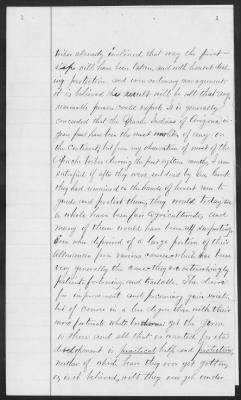 2
tribes already inclined that way the first
steps will have been taken and with honest deal-
ing protection and even ordinary management
it is believed the result will be all that any
reasonable person could expect. It is generally
conceded that the Apache Indians of Arizona in
years past have been the most of any on
the Continent, but from my observation of most of the
Apache tribes during the past eighteen months, I am
satisfied if after they were subdued by Gen Crook
they had remained in the hands of honest men to
guide and protect them, they would today as
a whole have been fair agriculturists, and
many of them would have been self supporting.
Even when deprived of a large portion of their
allowances from various causes which has been
very generally the case they are astonishingly
patient, forbearing and tractable. The desire
for improvement and permanency gain exists,
but of course in a less degree than with their
more fortunate white brethren yet the germ
is there and all that is wanted for its
development is practical help and protection,
neither of which have they ever yet gotten
or is it believed, will they ever get under